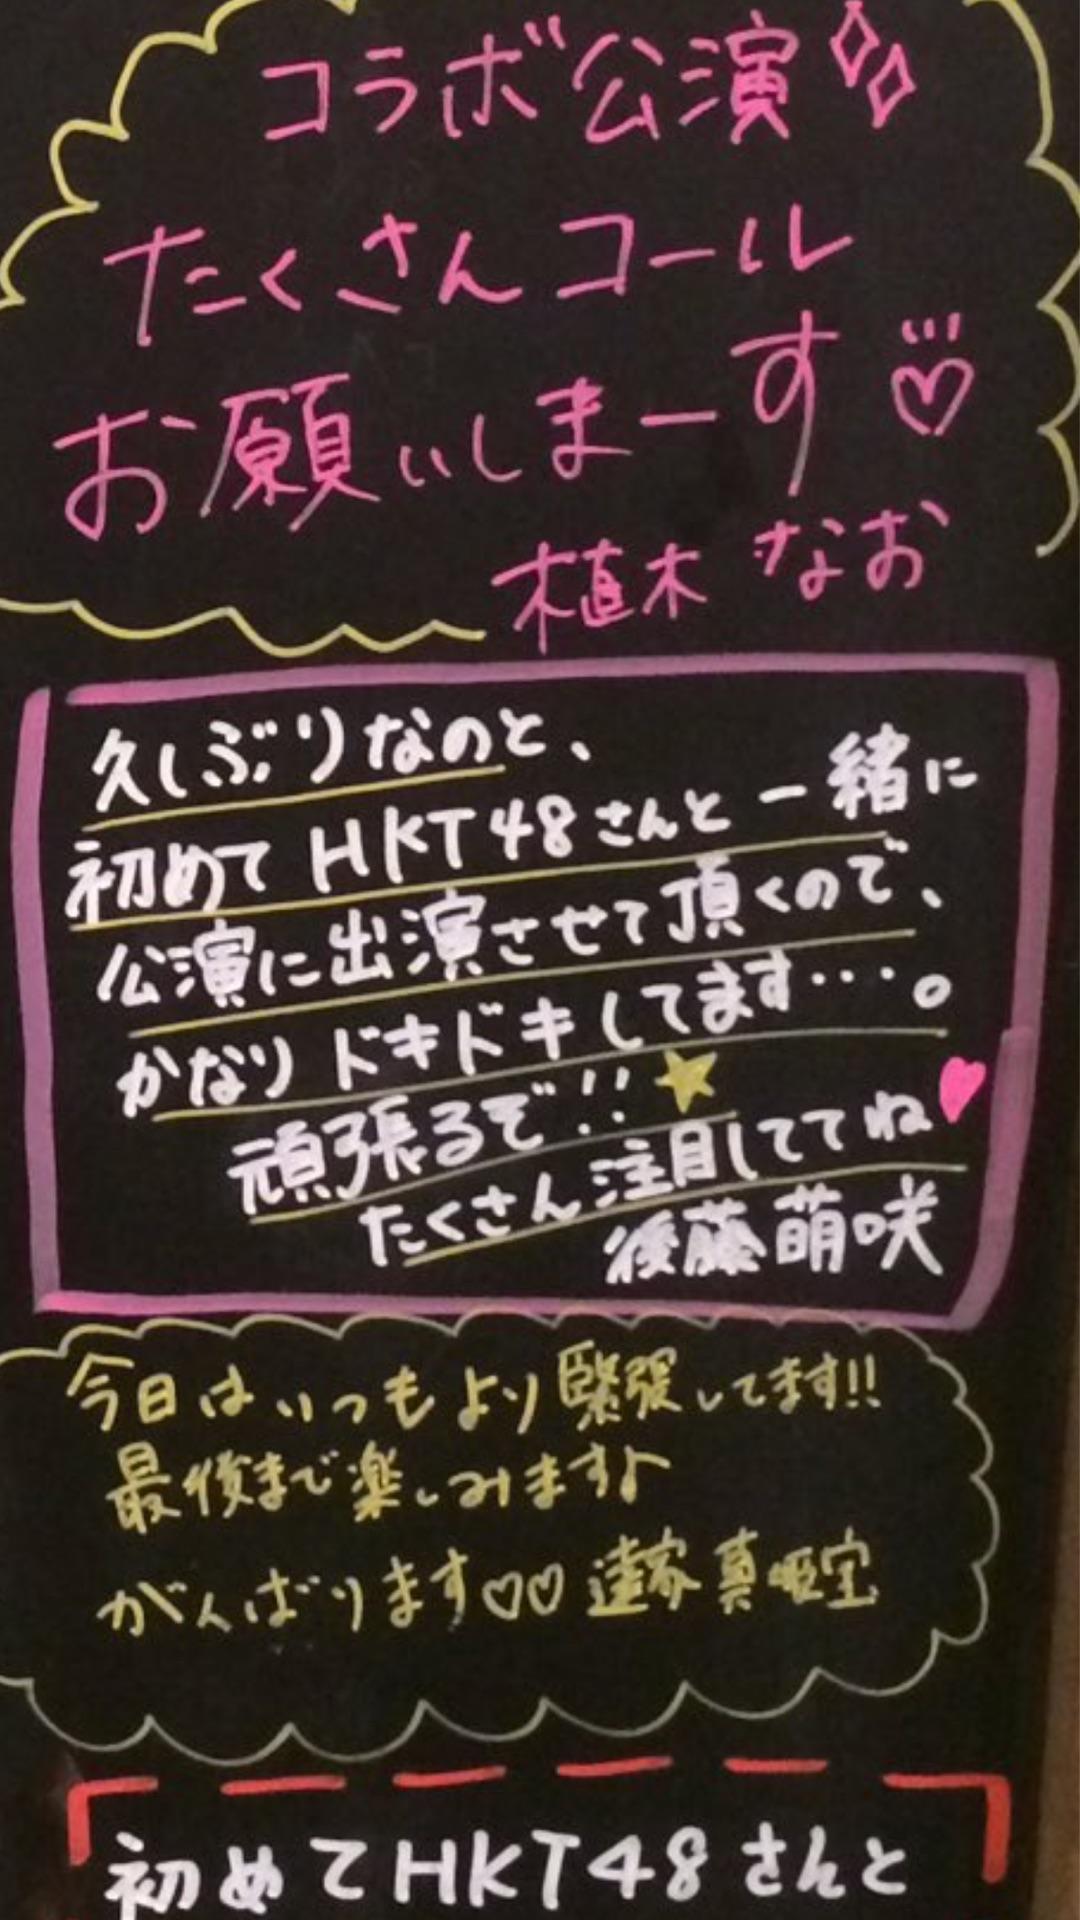 コラボ公演
たくさんコール
お願いしまーす♡
植木 なお
久しぶりなのと、
初めてHKT48さんと一緒に
公演に出演させて頂くので、
かなりドキドキしてます・・・。
頑張るぞ!!★
たくさん注目しててね♥
後藤萌咲
今日はいつもより緊張してます!!
最後まで楽しみます♪
がんばります♡♡ 達家真姫宝
初めてHKT48さんと